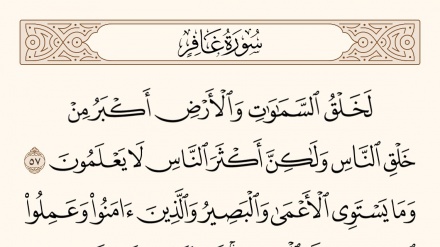 سُورَةُ غَافِرٍ
لَخَلْقُ ٱلسَّمَٰوَٰتِ وَٱلْأَرْضِ أَكْبَرُ مِنْ
خَلْقِ ٱلنَّاسِ وَلَٰكِنَّ أَكْثَرَ ٱلنَّاسِ لَا يَعْلَمُونَ ٥٧
وَمَا يَسْتَوِى ٱلْأَعْمَىٰ وَٱلْبَصِيرُ وَٱلَّذِينَ ءَامَنُوا۟ وَعَمِلُوا۟